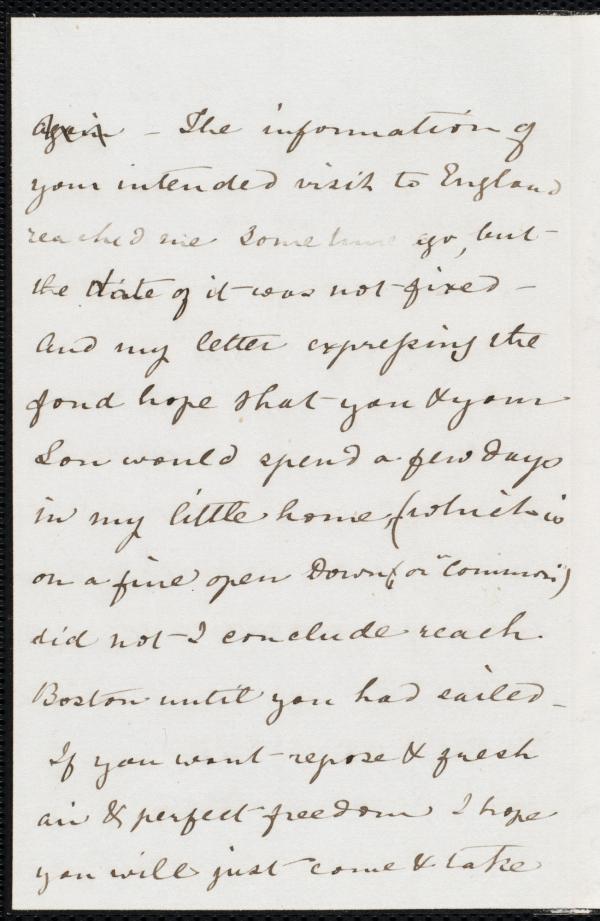 again – The information of
your intended visit to England
reached me some time ago, but –
the date of it was not fixed –
And my letter expressing the
fond hope that you & your
Son would spend a few days
in my little home, (which is
on a fine open Down (or "Common")
did not I conclude reach
Boston until you had sailed –
If you want repose & fresh
air & perfect freedom I hope
you will just come & take